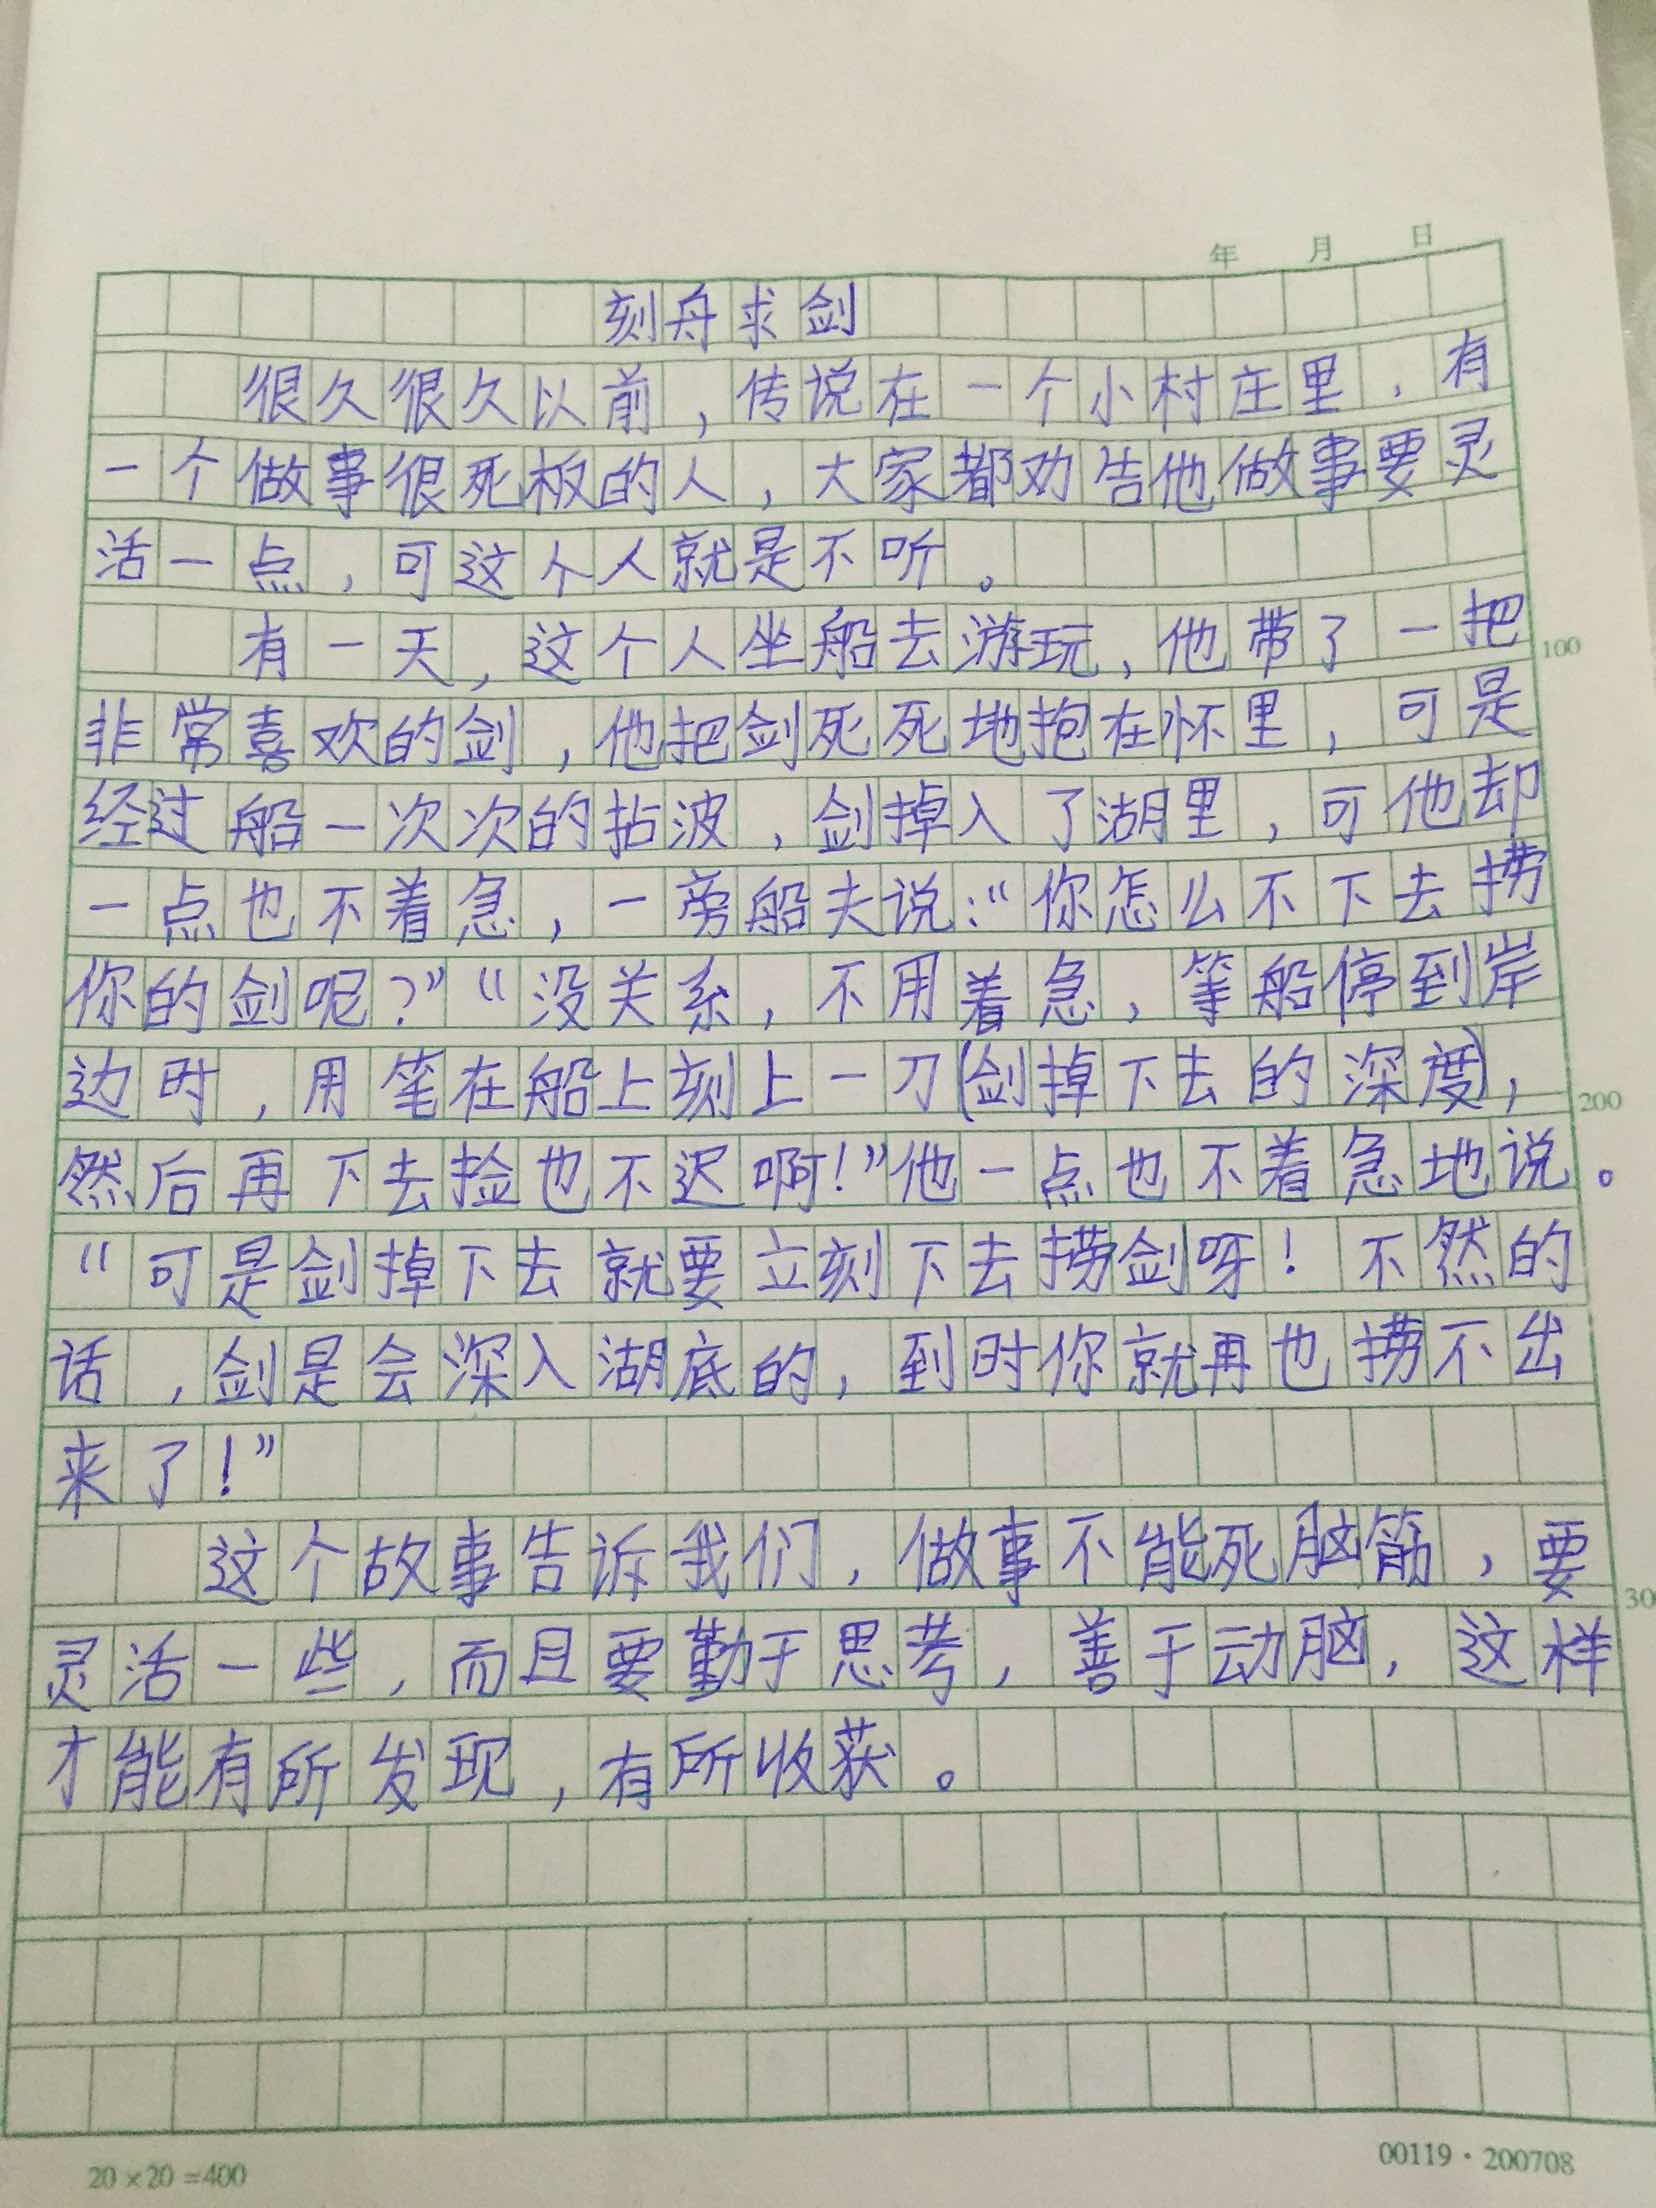 年 月 日
刻舟求剑
很久很久以前，传说在一个小村庄里，有
一个做事很死板的人，大家都劝告他做事要灵
活一点，可这个人就是不听。
有一天，这个人坐船去游玩，他带了一把
100
非常喜欢的剑，他把剑死死地抱在怀里，可是
经过船一次次的拈波，剑掉入了湖里，可他却
一点也不着急，一旁船夫说：“你怎么不下去捞
你的剑呢？”“没关系，不用着急，等船停到岸
边时，用笔在船上刻上一刀(剑掉下去的深度)，
200
然后再下去捡也不迟啊！”他一点也不着急地说。
“可是剑掉下去就要立刻下去捞剑呀！不然的
话，剑是会深入湖底的，到时你就再也捞不出
来了！”
这个故事告诉我们，做事不能死脑筋，要
30
灵活一些，而且要勤于思考，善于动脑，这样
才能有所发现，有所收获。
20×20=400
00119·200708